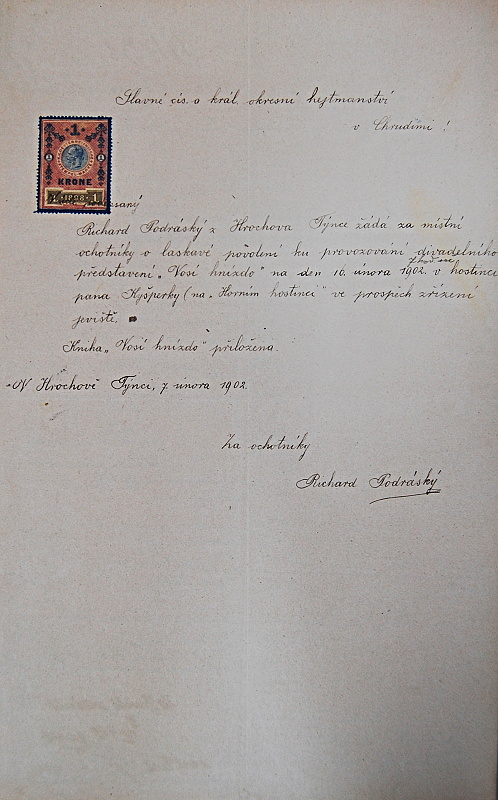 Slavné cís. a král. okresní hejtmanství
v Chrudimi!
1
KRONE
1898 1
psaný
Richard Podráský z Hrochova Týnce žádá za místní
ochotníky o laskavé pövolení ku provozování divadelního
představení „Vosí hnízdo" na den 10. února 1902. v hostinci
pana Kyšperky (na „Horním hostinci" ve prospěch zřízení
jeviště.
Kniha „Vosí hnízdo" přiložena.
V Hrochově Týnci, 7. února 1902.
Za ochotníky
Richard Podráský